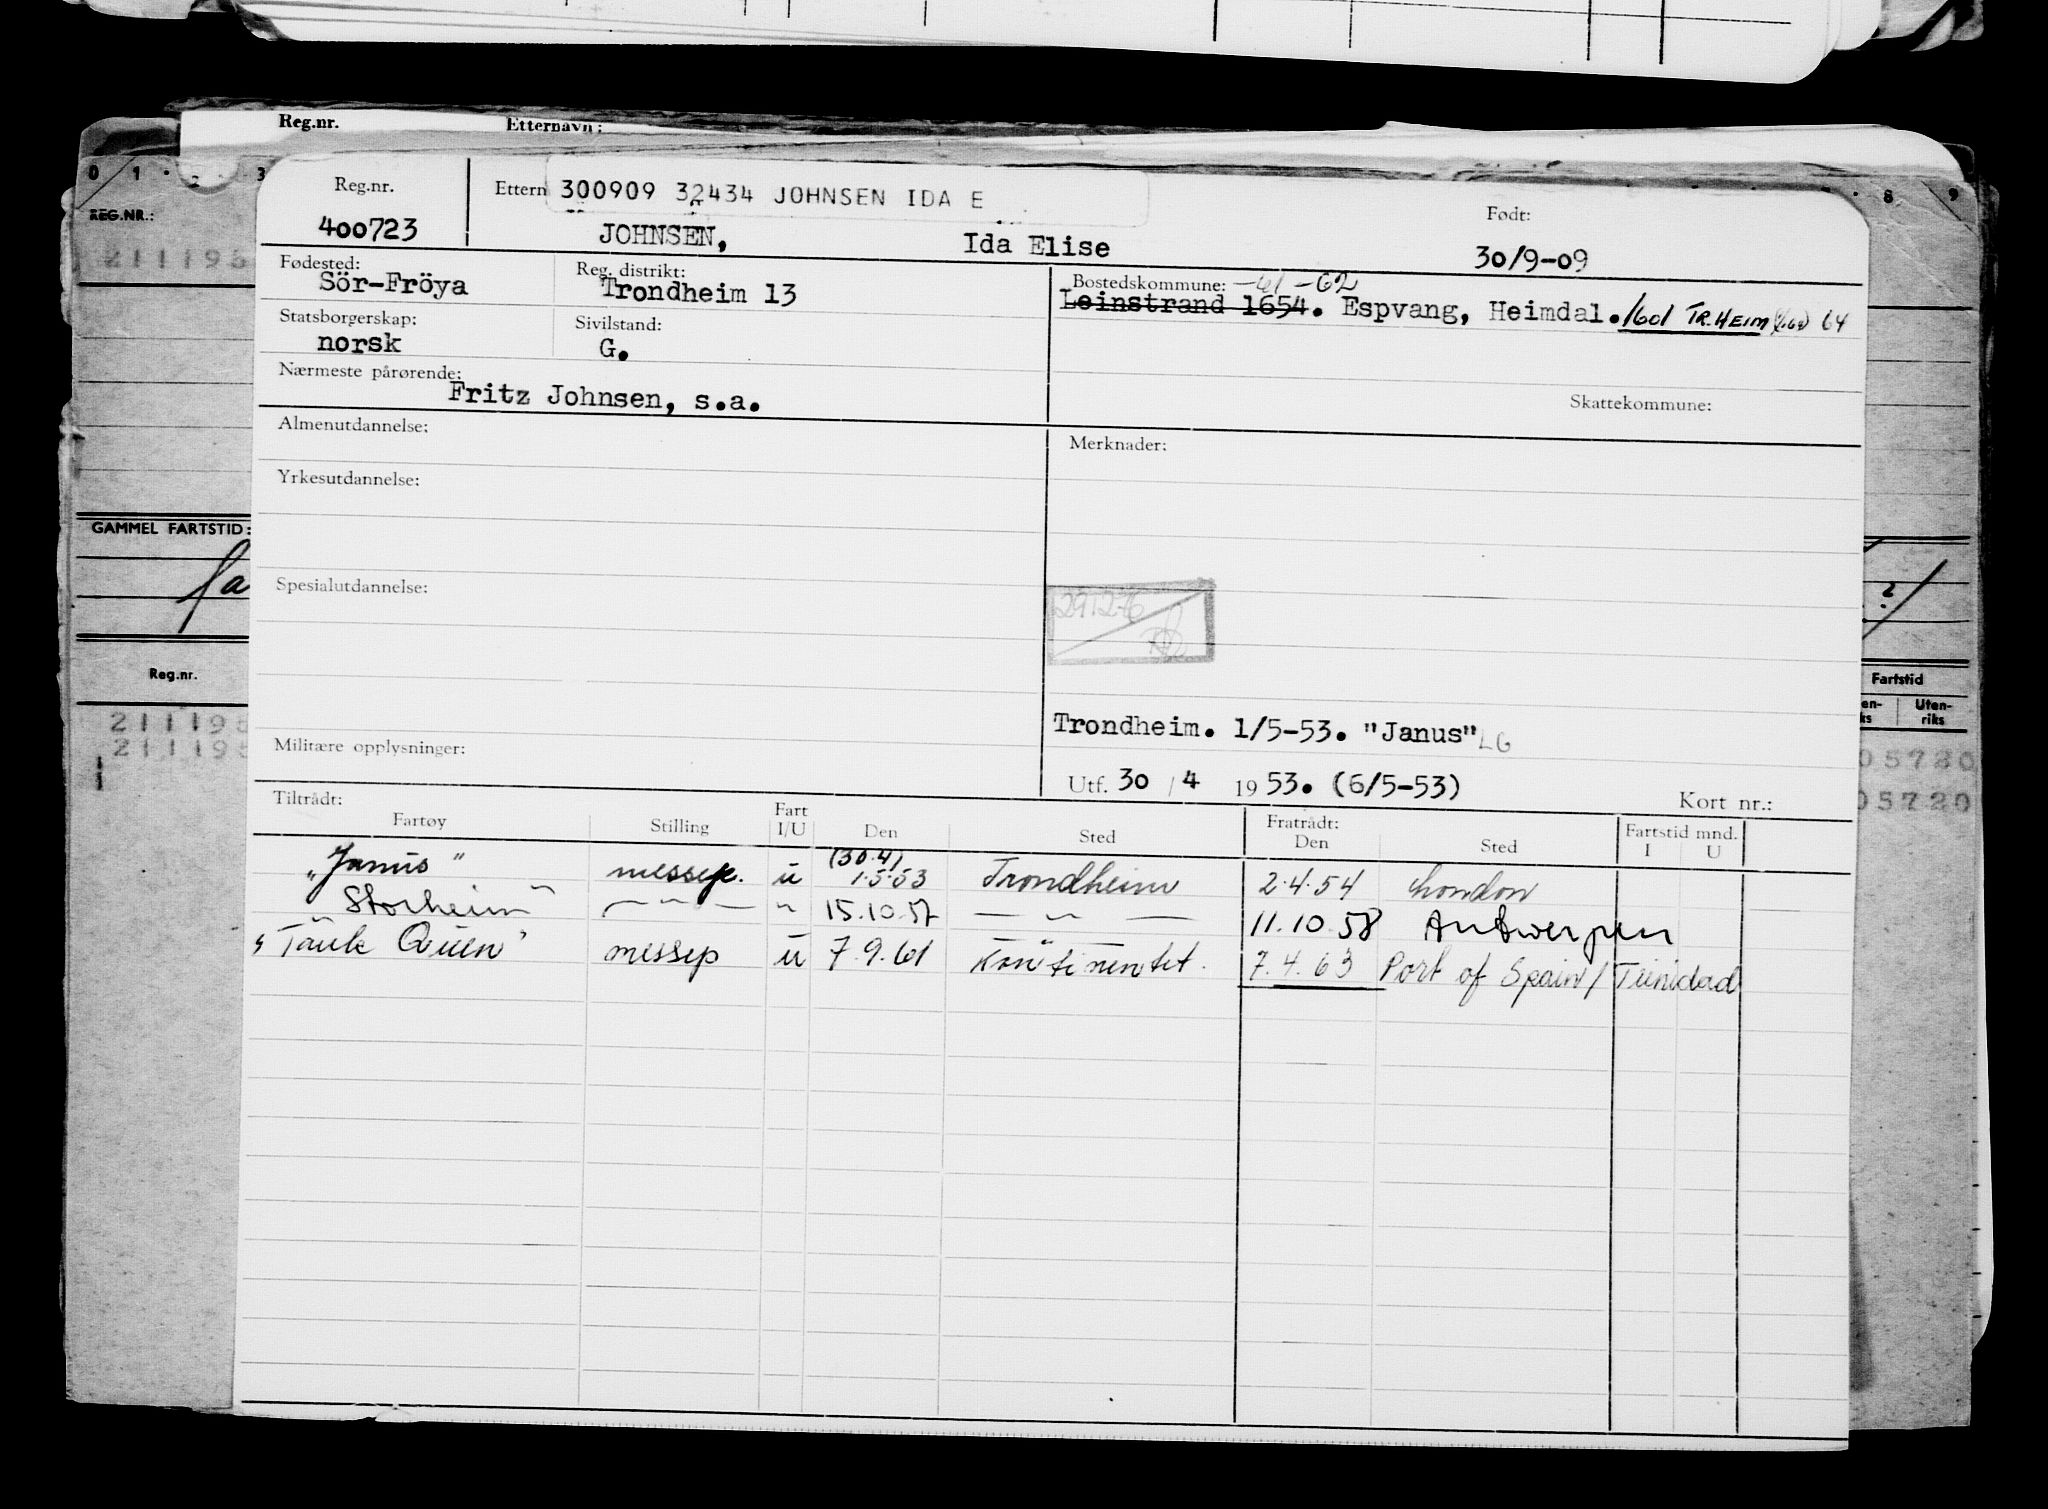 Reg.nr. Etternavn:
0 1 · 2 · 3 · 8 · 9
REG.NR.:
211195
GAMMEL FARTSTID:
Reg.nr.
211195
211195
Fartstid
Uten-
riks
05720
05720
Reg.nr. Ettern 300909 32434 JOHNSEN IDA E Født:
400723 JOHNSEN, Ida Elise 30/9-09
Fødested: Reg. distrikt: Bostedskommune: -61 -62
Sör-Fröya Trondheim 13 Leinstrand 1654. Espvang, Heimdal. 1601 TR.HEIM 64
Statsborgerskap: Sivilstand:
norsk G.
Nærmeste pårørende:
Fritz Johnsen, s.a.
Skattekommune:
Almenutdannelse: Merknader:
Yrkesutdannelse:
Spesialutdannelse:
291276
Trondheim. 1/5-53. "Janus" LG
Militære opplysninger:
Utf. 30 / 4 1953. (6/5-53) Kort nr.:
Tiltrådt: Fart Fratrådt: Fartstid mnd.
Fartøy Stilling I/U Den Sted Den Sted I U
(30.4)
"Janus" messep. u 1.5.53 Trondheim 2.4.54 London
Storheim" — " — " 15.10.57 — " — 11.10.58 Antwerpen
"Tank Queen" messep u 7.9.61 Kontinentet. 7.4.63 Port of Spain / Trinidad